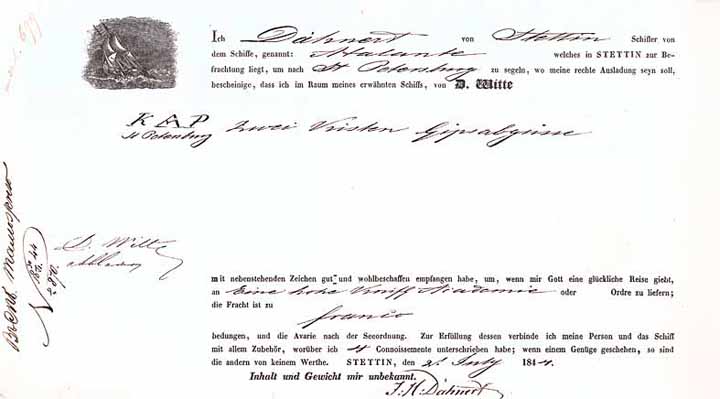 Ich Dähnert von Stettin Schiffer von
dem Schiffe, genannt: Atalante welches in STETTIN zur Be-
frachtung liegt, um nach St Petersburg zu segeln, wo meine rechte Ausladung seyn soll,
bescheinige, dass ich im Raum meines erwähnten Schiffs, von D. Witte
K A P
St Petersburg
zwei Kisten Gipsabgüsse
D. Witte
mit nebenstehenden Zeichen gut und wohlbeschaffen empfangen habe, um, wenn mir Gott eine glückliche Reise giebt,
an Eine hohe Academie oder Ordre zu liefern;
die Fracht ist zu
franco
bedungen, und die Avarie nach der Seeordnung. Zur Erfüllung dessen verbinde ich meine Person und das Schiff
mit allem Zubehör, worüber ich 4 Connoissemente unterschrieben habe; wenn einem Genüge geschehen, so sind
die andern von keinem Werthe. STETTIN, den 2 July 1844.
Inhalt und Gewicht mir unbekannt.
J. H. Dähnert